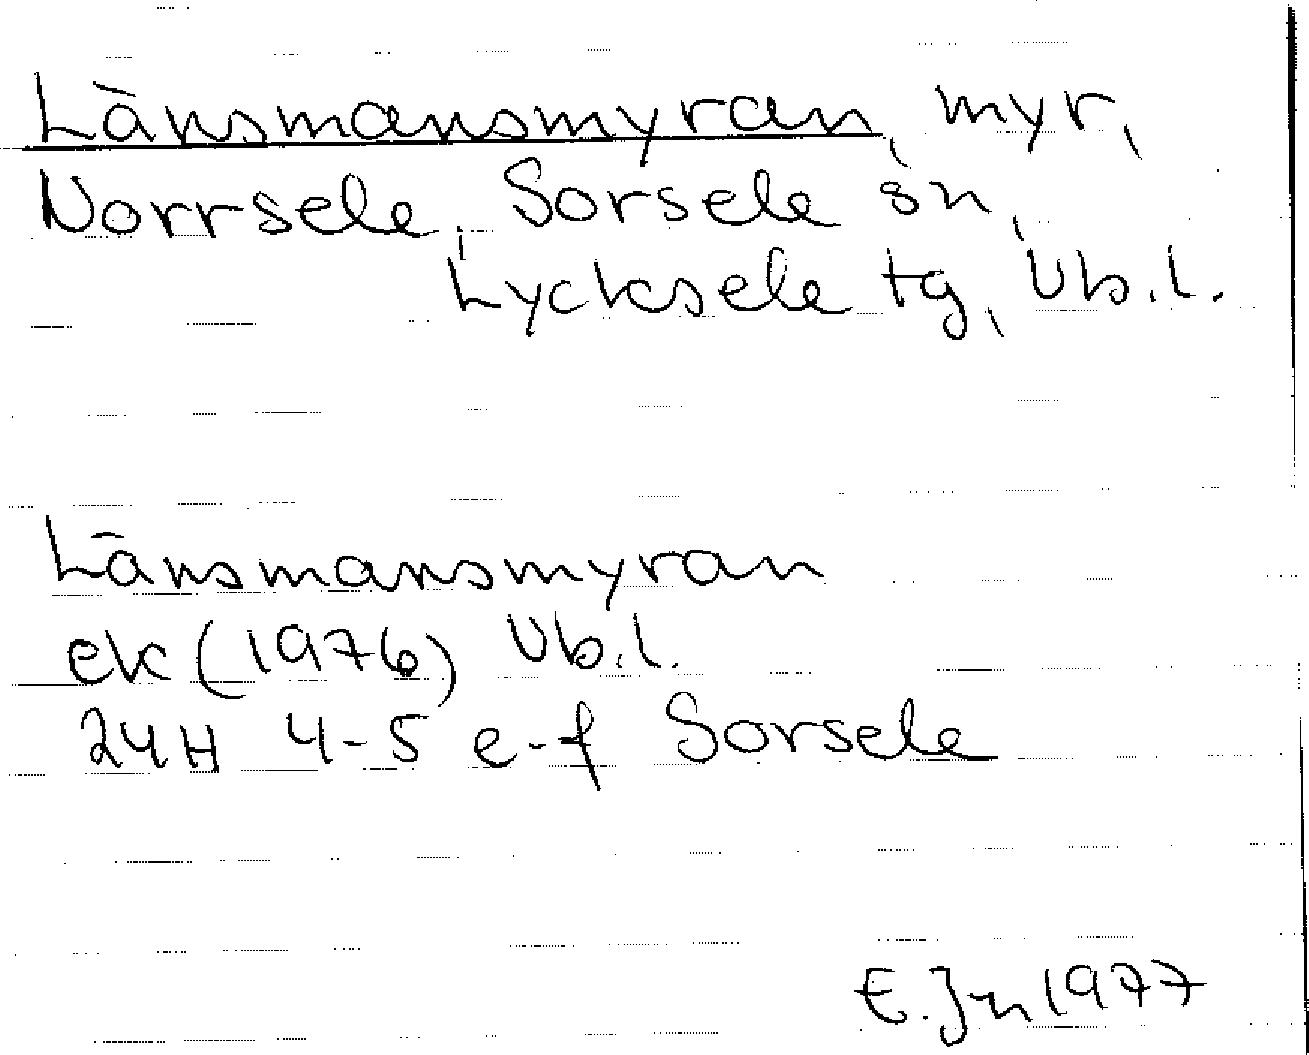 Länsmansmyran, myr,
Norrsele, Sorsele sn,
Lycksele tg, Vb.l.
Länsmansmyran
ek (1976) Vb.l.
24H 4-5 e-f Sorsele
E.Jn 1977